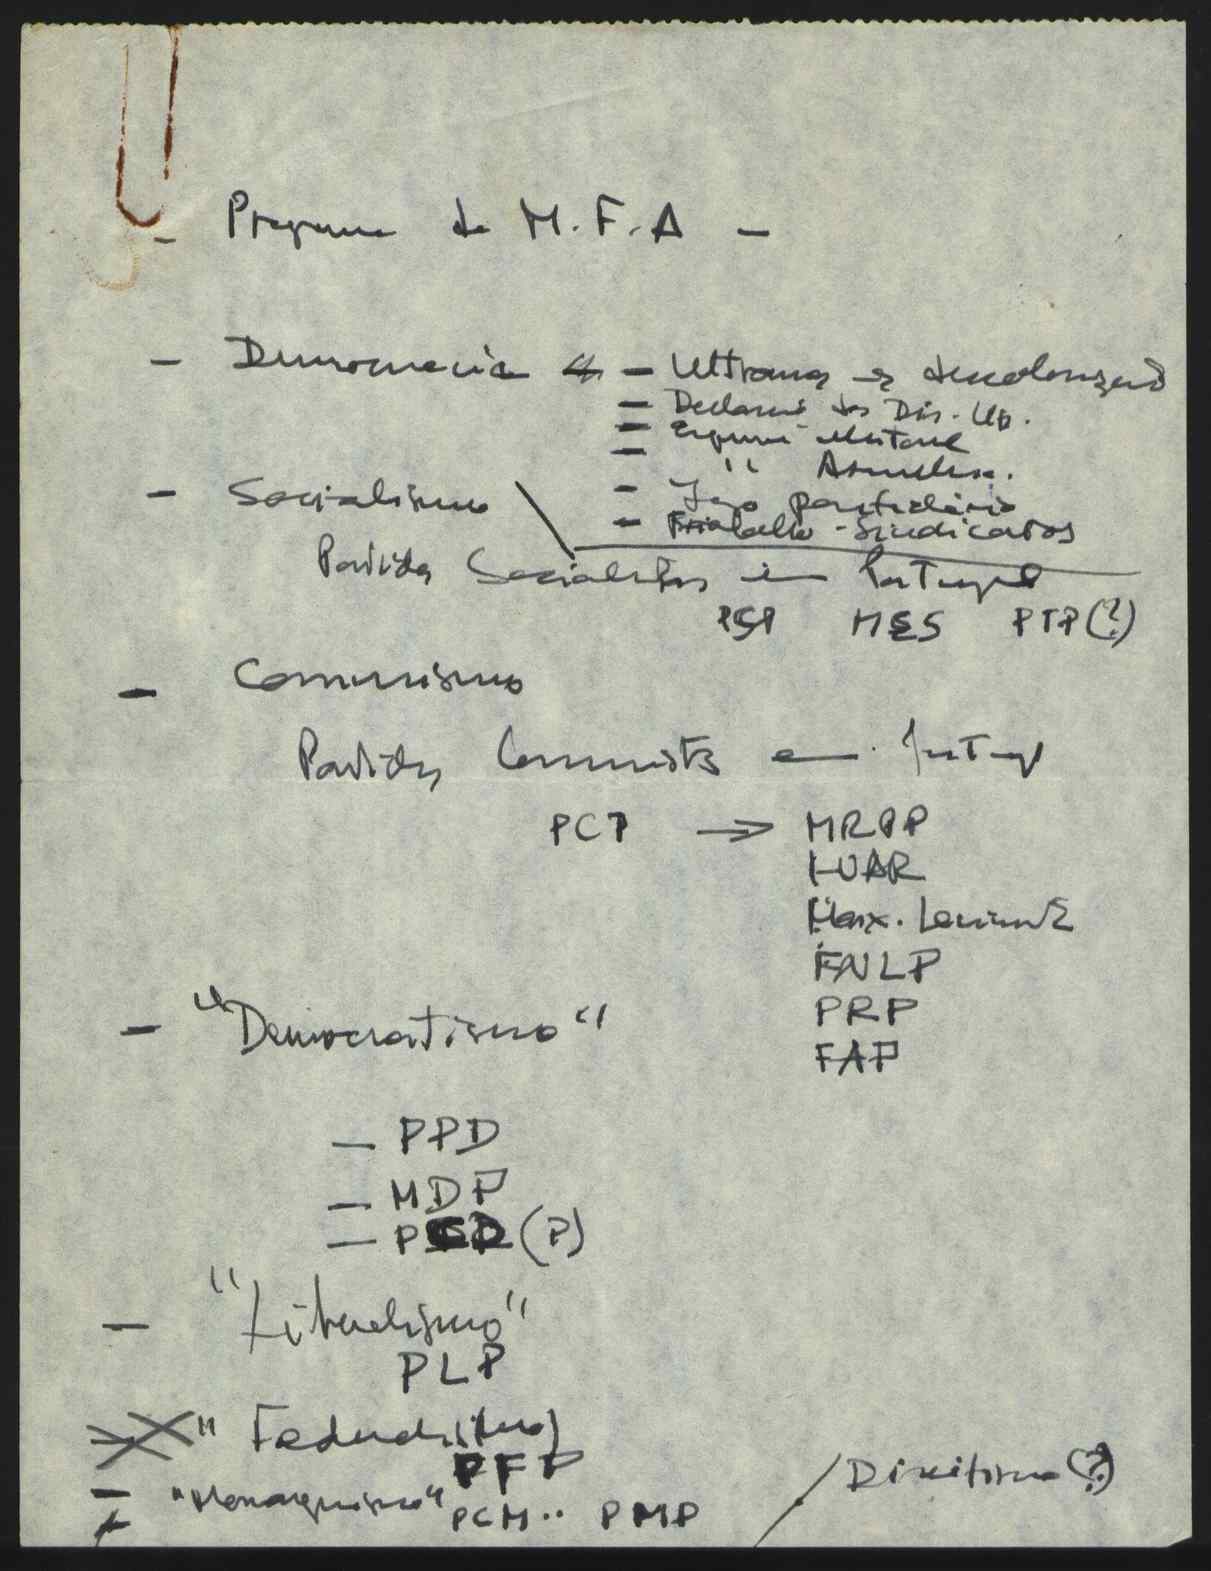 - Programa do M.F.A -
- Democracia - Ultramar → descolonizaç
- Declaraç dos Dir. Un.
- Esquema Mutane
- " Assemblei.
- Jogo partidário
- Trabalho - Sindicatos
- Socialismo
Partidos Socialistas em Portugal
PSP MES PTP(?)
- Comunismo
Partidos Comunistas em Portugal
PCP → MRPP
LUAR
Marx. Leninist
FNLP
PRP
FAP
- "Democratismo"
- PPD
- MDP
- PSD (P)
- "Liberalismo"
PLP
" Federalismo)
PFP
- "Monarquismo" PCM.. PMP
/ Direitismo (?)